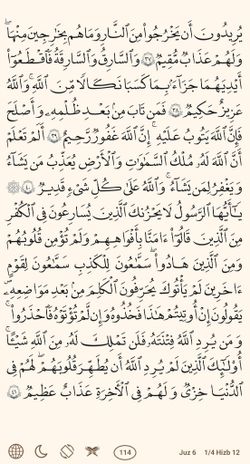 يُرِيدُونَ أَن يَخْرُجُوا۟ مِنَ ٱلنَّارِ وَمَا هُم بِخَٰرِجِينَ مِنْهَا ۖ
وَلَهُمْ عَذَابٌ مُّقِيمٌ ٣٧ وَٱلسَّارِقُ وَٱلسَّارِقَةُ فَٱقْطَعُوٓا۟
أَيْدِيَهُمَا جَزَآءًۢ بِمَا كَسَبَا نَكَٰلًا مِّنَ ٱللَّهِ ۗ وَٱللَّهُ
عَزِيزٌ حَكِيمٌ ٣٨ فَمَن تَابَ مِنۢ بَعْدِ ظُلْمِهِۦ وَأَصْلَحَ
فَإِنَّ ٱللَّهَ يَتُوبُ عَلَيْهِ ۗ إِنَّ ٱللَّهَ غَفُورٌ رَّحِيمٌ ٣٩ أَلَمْ تَعْلَمْ
أَنَّ ٱللَّهَ لَهُۥ مُلْكُ ٱلسَّمَٰوَٰتِ وَٱلْأَرْضِ يُعَذِّبُ مَن يَشَآءُ
وَيَغْفِرُ لِمَن يَشَآءُ ۗ وَٱللَّهُ عَلَىٰ كُلِّ شَىْءٍ قَدِيرٌ ٤٠
يَٰٓأَيُّهَا ٱلرَّسُولُ لَا يَحْزُنكَ ٱلَّذِينَ يُسَٰرِعُونَ فِى ٱلْكُفْرِ
مِنَ ٱلَّذِينَ قَالُوٓا۟ ءَامَنَّا بِأَفْوَٰهِهِمْ وَلَمْ تُؤْمِن قُلُوبُهُمْ ۛ
وَمِنَ ٱلَّذِينَ هَادُوا۟ ۛ سَمَّٰعُونَ لِلْكَذِبِ سَمَّٰعُونَ لِقَوْمٍ
ءَاخَرِينَ لَمْ يَأْتُوكَ ۖ يُحَرِّفُونَ ٱلْكَلِمَ مِنۢ بَعْدِ مَوَاضِعِهِۦ ۖ
يَقُولُونَ إِنْ أُوتِيتُمْ هَٰذَا فَخُذُوهُ وَإِن لَّمْ تُؤْتَوْهُ فَٱحْذَرُوا۟ ۚ
وَمَن يُرِدِ ٱللَّهُ فِتْنَتَهُۥ فَلَن تَمْلِكَ لَهُۥ مِنَ ٱللَّهِ شَيْـًٔا ۚ
أُو۟لَٰٓئِكَ ٱلَّذِينَ لَمْ يُرِدِ ٱللَّهُ أَن يُطَهِّرَ قُلُوبَهُمْ ۚ لَهُمْ فِى
ٱلدُّنْيَا خِزْىٌ ۖ وَلَهُمْ فِى ٱلْءَاخِرَةِ عَذَابٌ عَظِيمٌ ٤١
114 Juz 6 1/4 Hizb 12